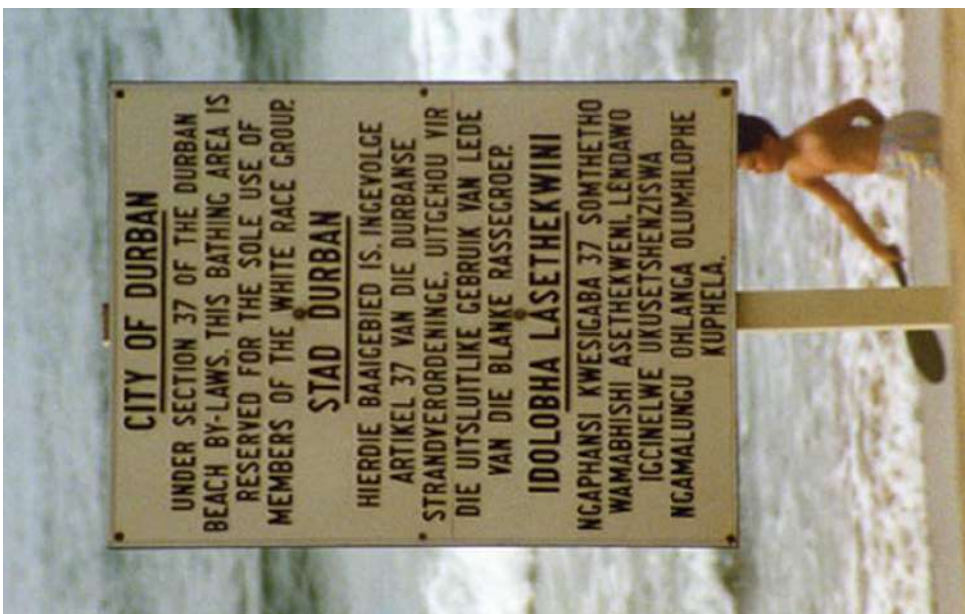 CITY OF DURBAN
UNDER SECTION 37 OF THE DURBAN
BEACH BY-LAWS, THIS BATHING AREA IS
RESERVED FOR THE SOLE USE OF
MEMBERS OF THE WHITE RACE GROUP.
STAD DURBAN
HIERDIE BAAGEBIED IS, INGEVOLGE
ARTIKEL 37 VAN DIE DURBANSE
STRANDVERORDENINGE, UITGEHOU VIR
DIE UITSLUITLIKE GEBRUIK VAN LEDE
VAN DIE BLANKE RASSEGROEP.
IDOLOBHA LASETHEKWINI
NGAPHANSI KWESIGABA 37 SOMTHETHO
WAMABHISHI ASETHEKWENI, LENDAWO
IGCINELWE UKUSETSHENZISWA
NGAMALUNGU OHLANGA OLUMHLOPHE
KUPHELA.